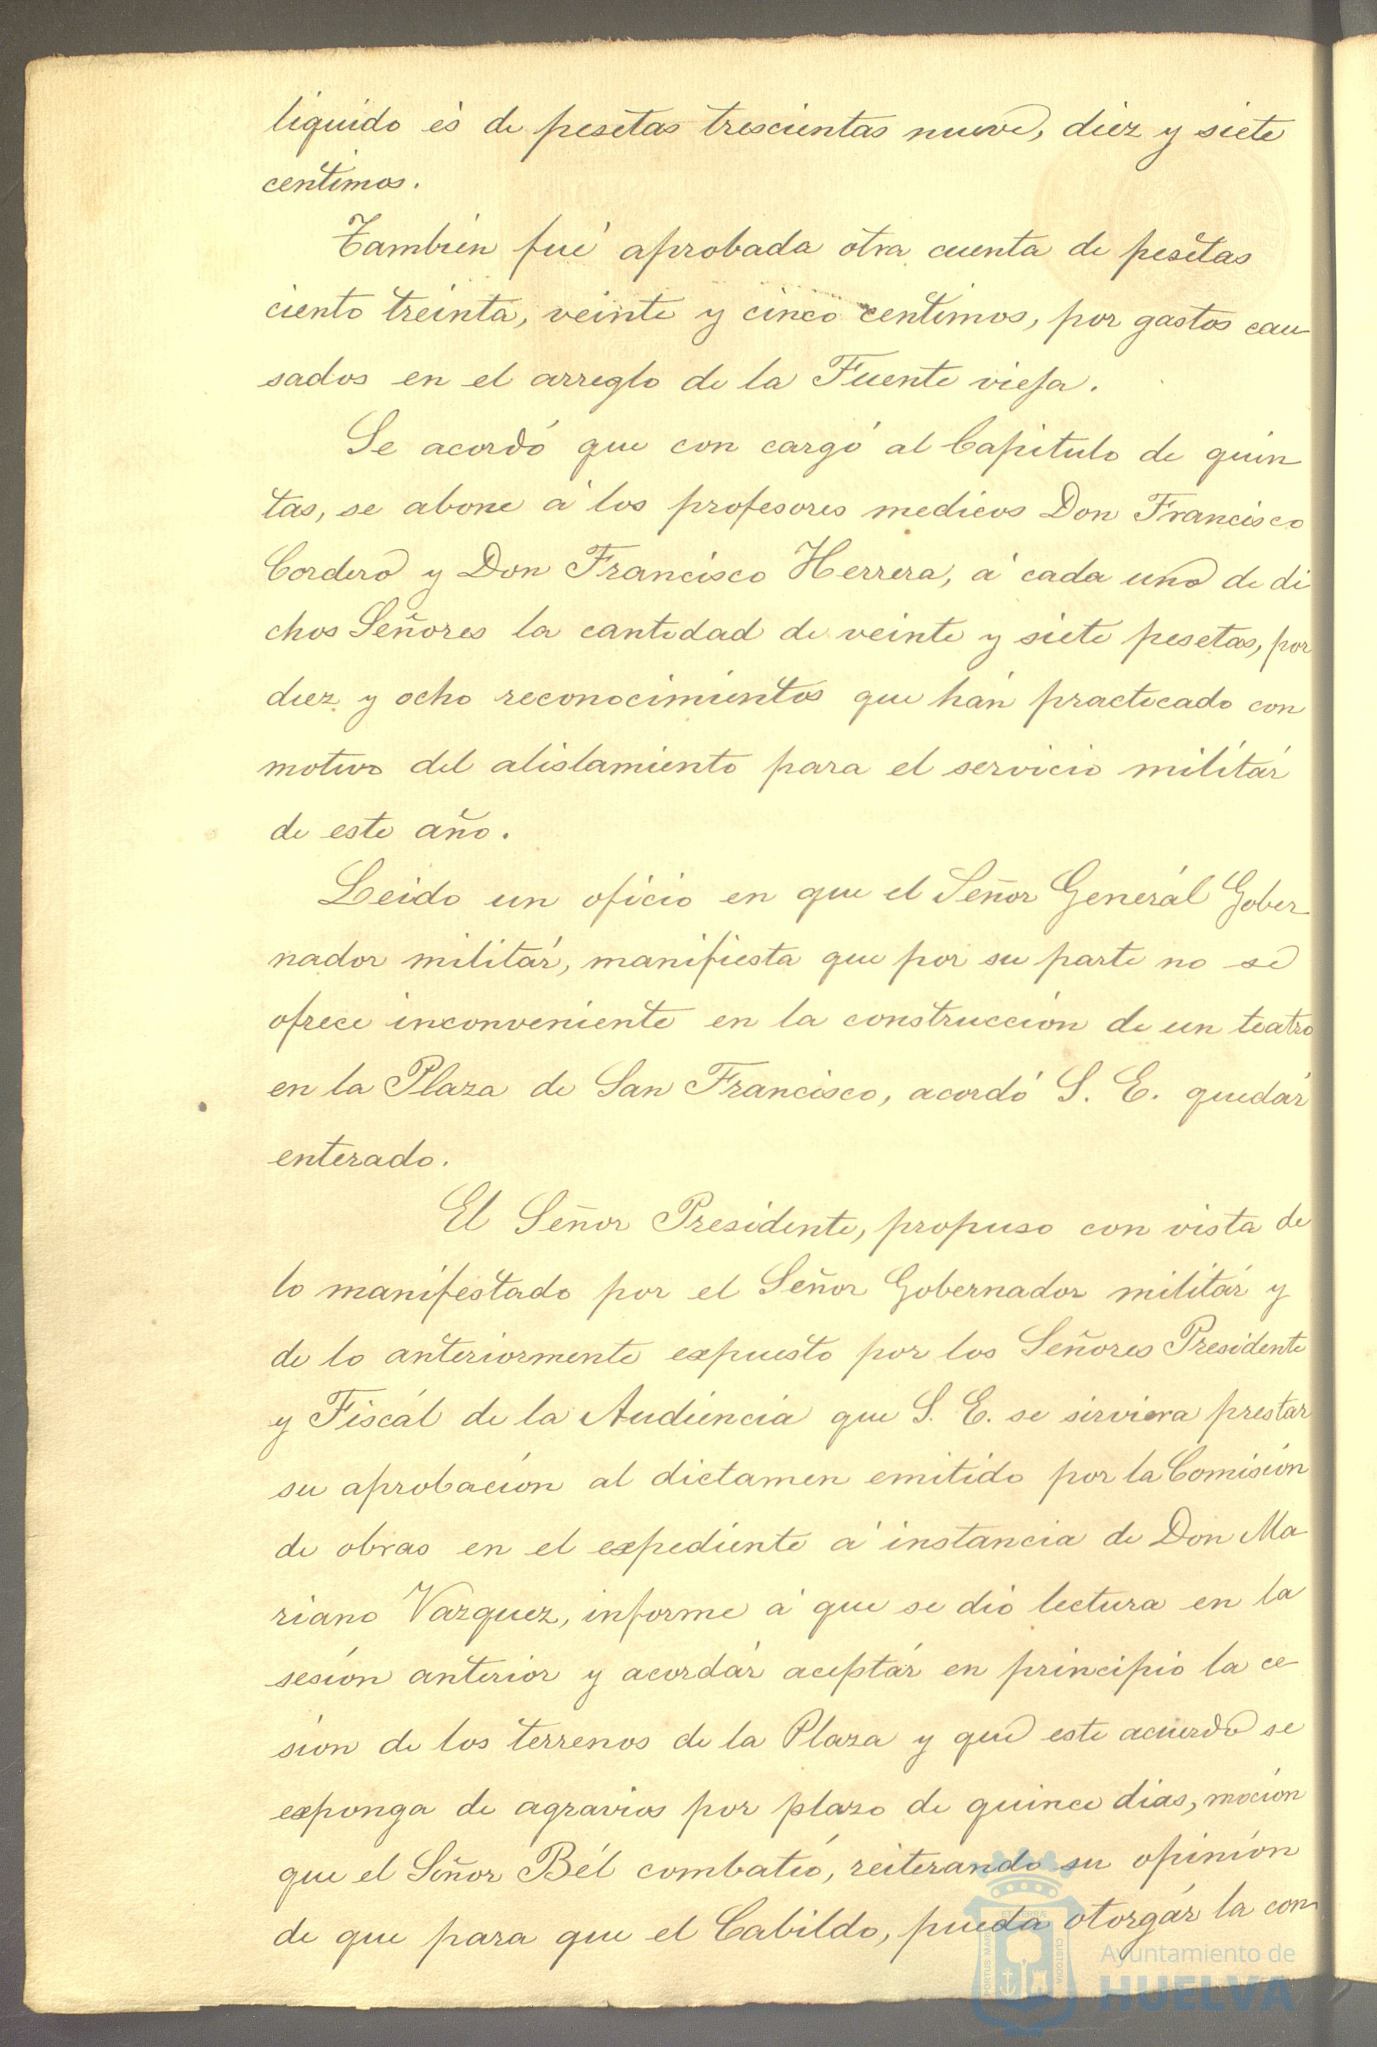 liquido és de pesetas trescientas nueve, diez y siete
centimos.
Tambien fué aprobada otra cuenta de pesetas
ciento treinta, veinte y cinco centimos, por gastos cau
sados en el arreglo de la Fuente vieja.
Se acordó que con cargó al Capitulo de quin
tas, se abone á los profesores medicos Don Francisco
Cordero y Don Francisco Herrera, á cada uno de di
chos Señores la cantidad de veinte y siete pesetas, por
diez y ocho reconocimientos que hán practicado con
motivo del alistamiento para el servicio militár
de este año.
Leido un oficio en que el Señor Generál Gober
nador militár, manifiesta que por su parte no se
ofrece inconveniente en la construcción de un teatro
en la Plaza de San Francisco, acordó S. E. quedár
enterado.
El Señor Presidente, propuso con vista de
lo manifestado por el Señor Gobernador militár y
de lo anteriormente expuesto por los Señores Presidente
y Fiscál de la Audiencia que S. E. se sirviera prestar
su aprobación al dictamen emitido por la Comisión
de obras en el expediente á instancia de Don Ma
riano Vazquez, informe á que se dió lectura en la
sesión anterior y acordár aceptár en principio la ce
sión de los terrenos de la Plaza y que este acuerdo se
exponga de agravios por plazo de quince dias, moción
que el Señor Bél combatió, reiterando su opinión
de que para que el Cabildo, pueda otorgár la con
Ayuntamiento de
HUELVA